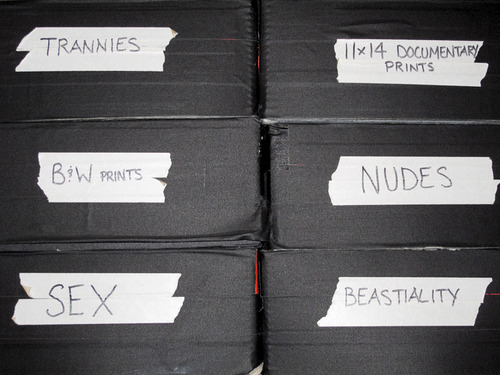 TRANNIES
11x14 DOCUMENTARY
PRINTS
B&W PRINTS
NUDES
SEX
BEASTIALITY